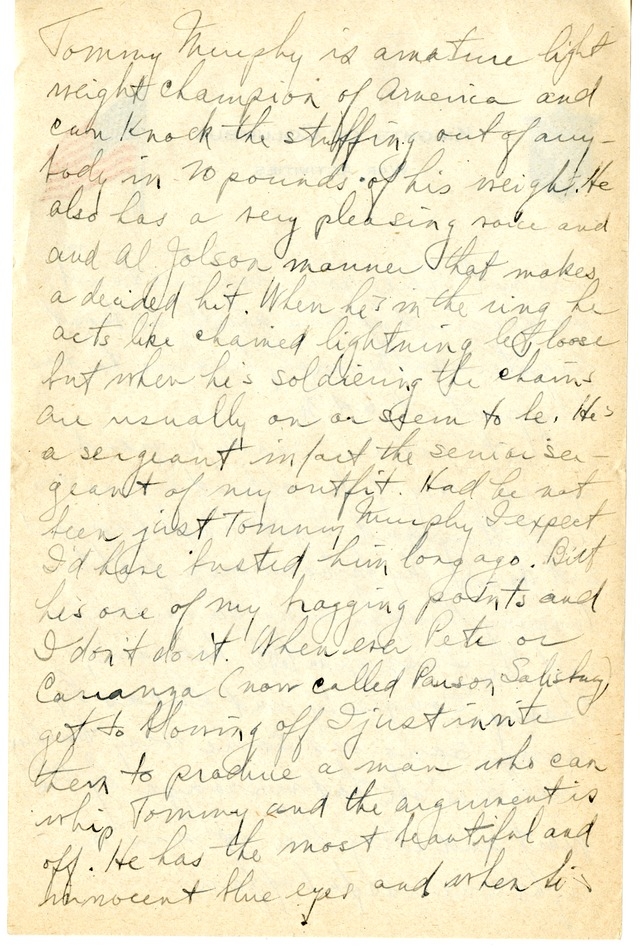 Tommy Murphy is amature light
weight champion of America and
can knock the stuffing out of any-
body in 20 pounds of his weight. He
also has a very pleasing voice and
and Al Jolson manner that makes
a decided hit. When he's in the ring he
acts like chained lightning let loose
but when he's soldiering the chains
are usually on or seem to be. He's
a sergeant infact the senior ser-
geant of my outfit. Had he not
been just Tommy Murphy I expect
I'd have busted him long ago. But
he's one of my bragging points and
I don't do it. When ever Pete or
Caranza (now called Parson Salisbury)
get to blowing off I just invite
them to produce a man who can
whip Tommy and the argument is
off. He has the most beautiful and
innocent blue eyes and when